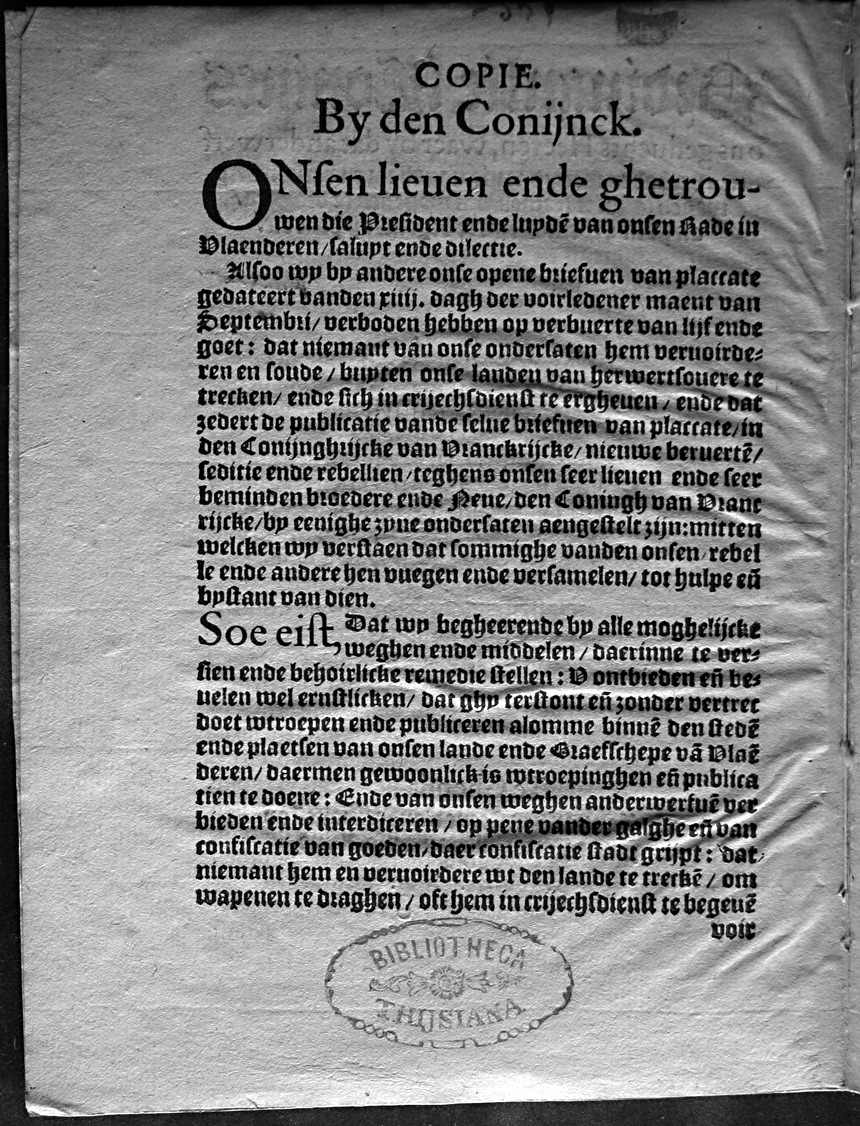 COPIE.
By den Conijnck.
ONſen lieuen ende ghetrou-
wen die Preſident ende luydē van onſen Rade in
Vlaenderen/ſaluyt ende dilectie.
Alſoo wy by andere onſe opene briefuen van placcate
gedateert vanden xiiij. dagh der voirledener maent van
Septembri/ verboden hebben op verbuerte van lijf ende
goet: dat niemant van onſe onderſaten hem veruoirde-
ren en ſoude / buyten onſe landen van herwertſouere te
trecken/ ende ſich in crijechſdienſt te ergheuen / ende dat
zedert de publicatie vande ſelue briefuen van placcate/in
den Conijnghrijcke van Vranckrijcke/ nieuwe beruertē/
ſeditie ende rebellien/teghens onſen ſeer lieuen ende ſeer
beminden broedere ende Neue/den Coningh van Vranc
rijcke/by eenighe zyne onderſaten aengeſtelt zijn:mitten
welcken wy verſtaen dat ſommighe vanden onſen rebel
le ende andere hen vuegen ende verſamelen/ tot hulpe eñ
byſtant van dien.
Soe eiſt, Dat wy begheerende by alle moghelijcke
weghen ende middelen / daerinne te ver-
ſien ende behoirlicke remedie ſtellen: V ontbieden eñ be-
uelen wel ernſtlicken/ dat ghy terſtont eñ zonder vertrec
doet wtroepen ende publiceren alomme binnē den ſtedē
ende plaetſen van onſen lande ende Graefſchepe vā Vlaē
deren/ daermen gewoonlick is wtroepinghen eñ publica
tien te doene: Ende van onſen weghen anderwerfuē ver
bieden ende interdiceren / op pene vander galghe eñ van
confiſcatie van goeden/daer confiſcatie ſtadt grijpt: dat
niemant hem en veruoirdere wt den lande te treckē / om
wapenen te draghen / oft hem in crijechſdienſt te begeuē
voir
BIBLIOTHECA
THYSIANA